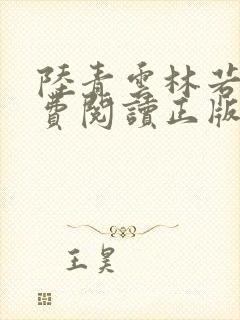 陸青雲林若
費閱讀正版
王昊